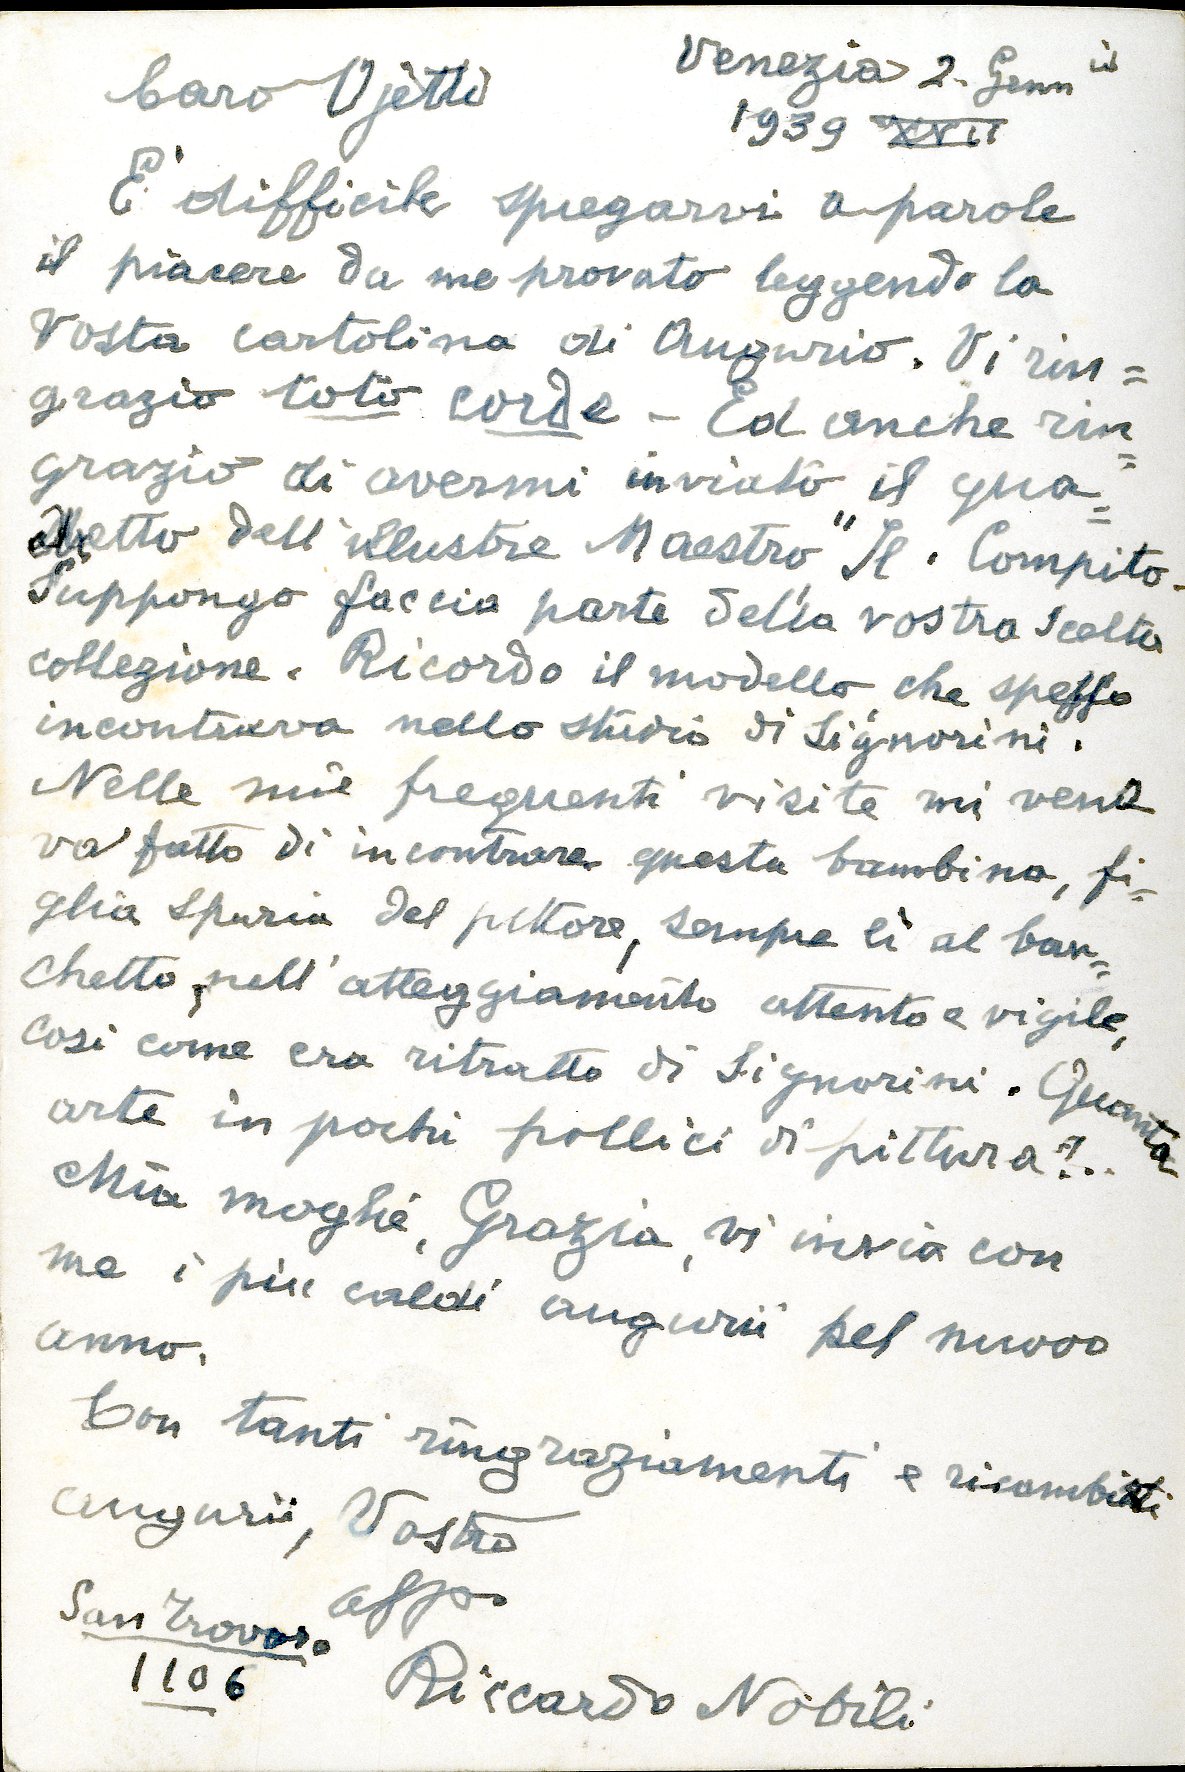 Venezia 2. Genn
1939 XVII
Caro Ojetti
E' difficile spiegarvi a parole
il piacere da me provato leggendo la
Vosta cartolina di Augurio. Vi rin=
grazio toto corde - Ed anche rin=
grazio di avermi inviato il qua=
dretto dell'illustre Maestro "Il Compito.
Suppongo faccia parte della vostra scelta
collezione. Ricordo il modello, che spesso
incontravo nello studio di Signorini.
Nelle mie frequenti visite mi veni
va fatto di incontrare questa bambina, fi=
glia spuria del pittore, sempre lì al ban=
chetto, nell'atteggiamento attento e vigile,
così come era ritratto di Signorini. Quanta
arte in pochi pollici di pittura?..
Mia moglie, Grazia, vi invia con
me i più caldi augurii pel nuovo
anno.
Con tanti ringraziamenti e ricambiati
augurii, Vostro
affo
San Trovaso
1106
Riccardo Nobili